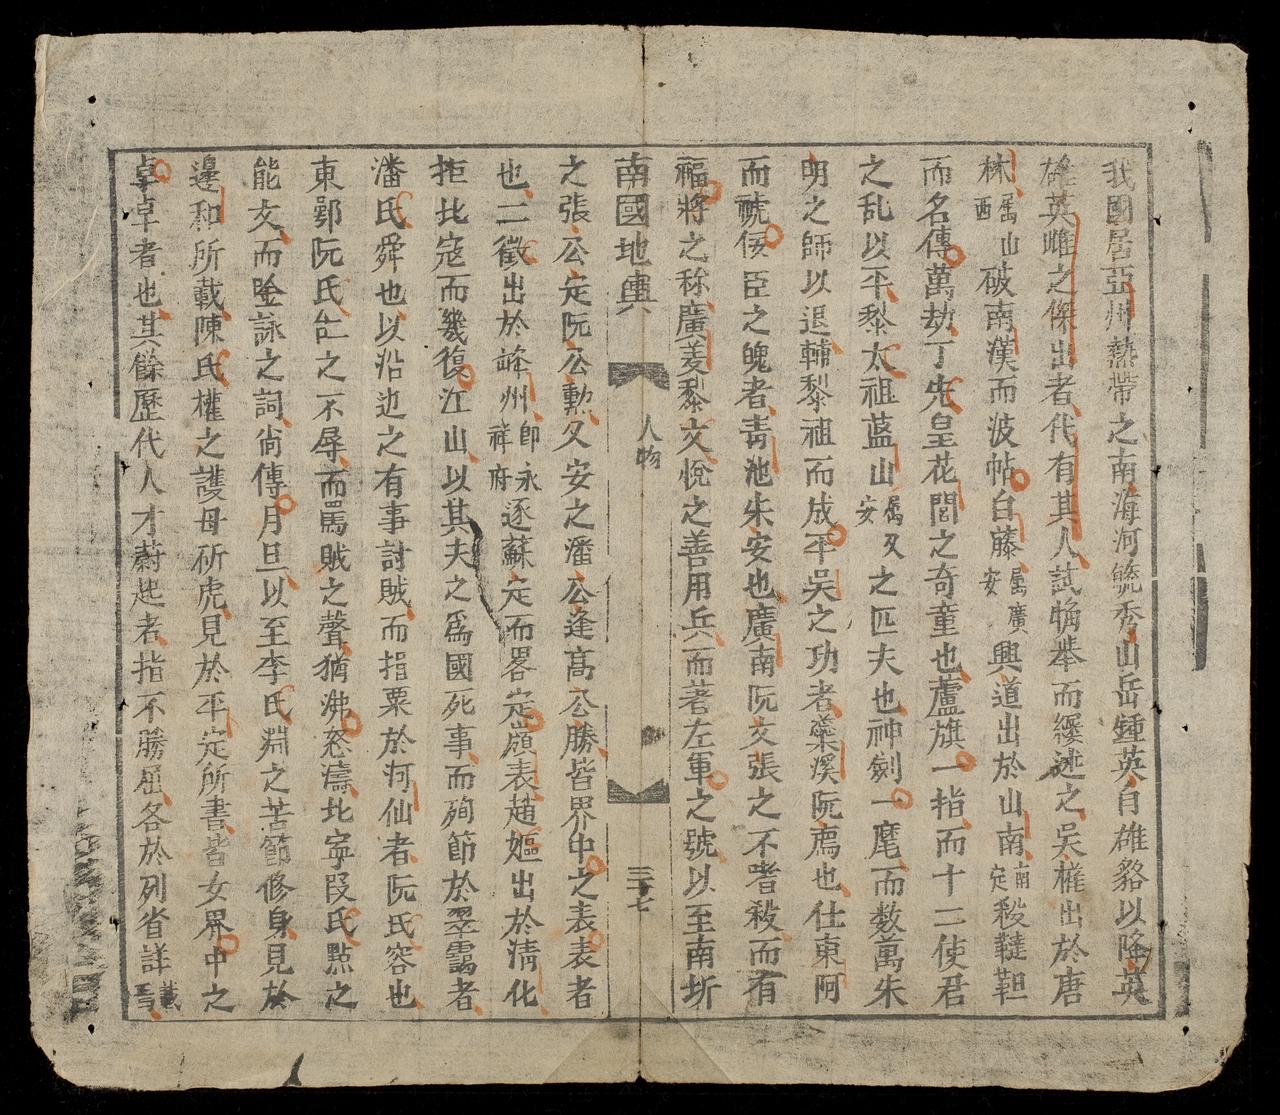 我國居亞州熱帶之南海河毓秀山岳鍾英自雄貉以降英
雄英雌之傑出者代有其人試略舉而縷述之吳權出於唐
林屬山西破南漢而波帖白藤屬廣安興道出於山南南定殺韃靼
而名傳萬劫丁先皇花閭之奇童也蘆旗一指而十二使君
之乱以平黎太祖藍山屬乂安之匹夫也神劍一麾而数萬朱
明之師以退輔黎祖而成平吳之功者蘂溪阮薦也仕東阿
而號侫臣之魄者青池朱安也廣南阮文張之不嗜殺而有
福將之称廣義黎文悅之善用兵而著左軍之號以至南圻
南國地輿 人物 三十七
之張公定阮公勲乂安之潘公逢高公勝皆界中之表表者
也二徵出於峰州即永祥府逐蘇定而畧定嶺表趙嫗出於清化
拒北寇而幾復江山以其夫之爲國死事而殉節於翠靄者
潘氏舜也以沿边之有事討賊而捐粟於河仙者阮氏容也
東鄂阮氏缶之不辱而罵賊之聲猶沸怒濤北寧段氏點之
能文而唫詠之詞尙傳月旦以至李氏淵之苦節修身見於
邊和所載陳氏權之護母斫虎見於平定所書皆女界中之
卓卓者也其餘歷代人才蔚起者指不勝屈各於列省詳